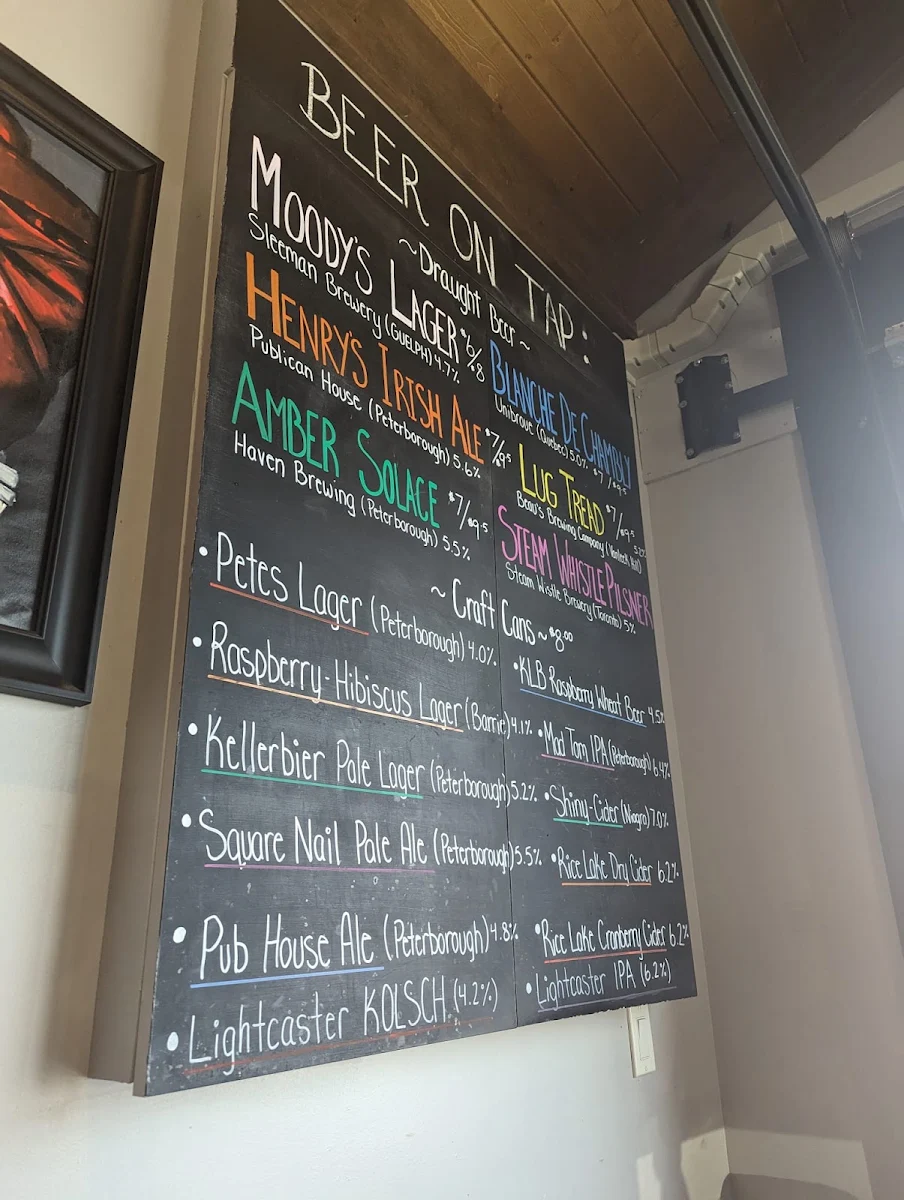 BEER ON TAP:
~Draught Beer~
MOODY'S LAGER $6/$8
Sleeman Brewery (GUELPH) 4.7%
HENRY'S IRISH ALE $7/$9.5
Publican House (Peterborough) 5.6%
AMBER SOLACE $7/$9.5
Haven Brewing (Peterborough) 5.5%
BLANCHE DE CHAMBLY
Unibroue (Quebec) 5.0% $7/$9.5
LUG TREAD $7/$9.5
Beau's Brewing Company 5.2%
STEAM WHISTLE PILSNER
Steam Wistle Brewery (Toronto) 5%
~ Craft Cans ~ $8.00
• Petes Lager (Peterborough) 4.0%
• Raspberry-Hibiscus Lager (Barrie) 4.1%
• Kellerbier Pale Lager (Peterborough) 5.2%
• Square Nail Pale Ale (Peterborough) 5.5%
• Pub House Ale (Peterborough) 4.8%
• Lightcaster KOLSCH (4.2%)
• KLB Raspberry Wheat Beer 4.5%
• Mad Tom IPA (Peterborough) 6.4%
• Shiny-Cider (Niagra) 7.0%
• Rice Lake Dry Cider 6.2%
• Rice Lake Cranberry Cider 6.2%
• Lightcaster IPA (6.2%)